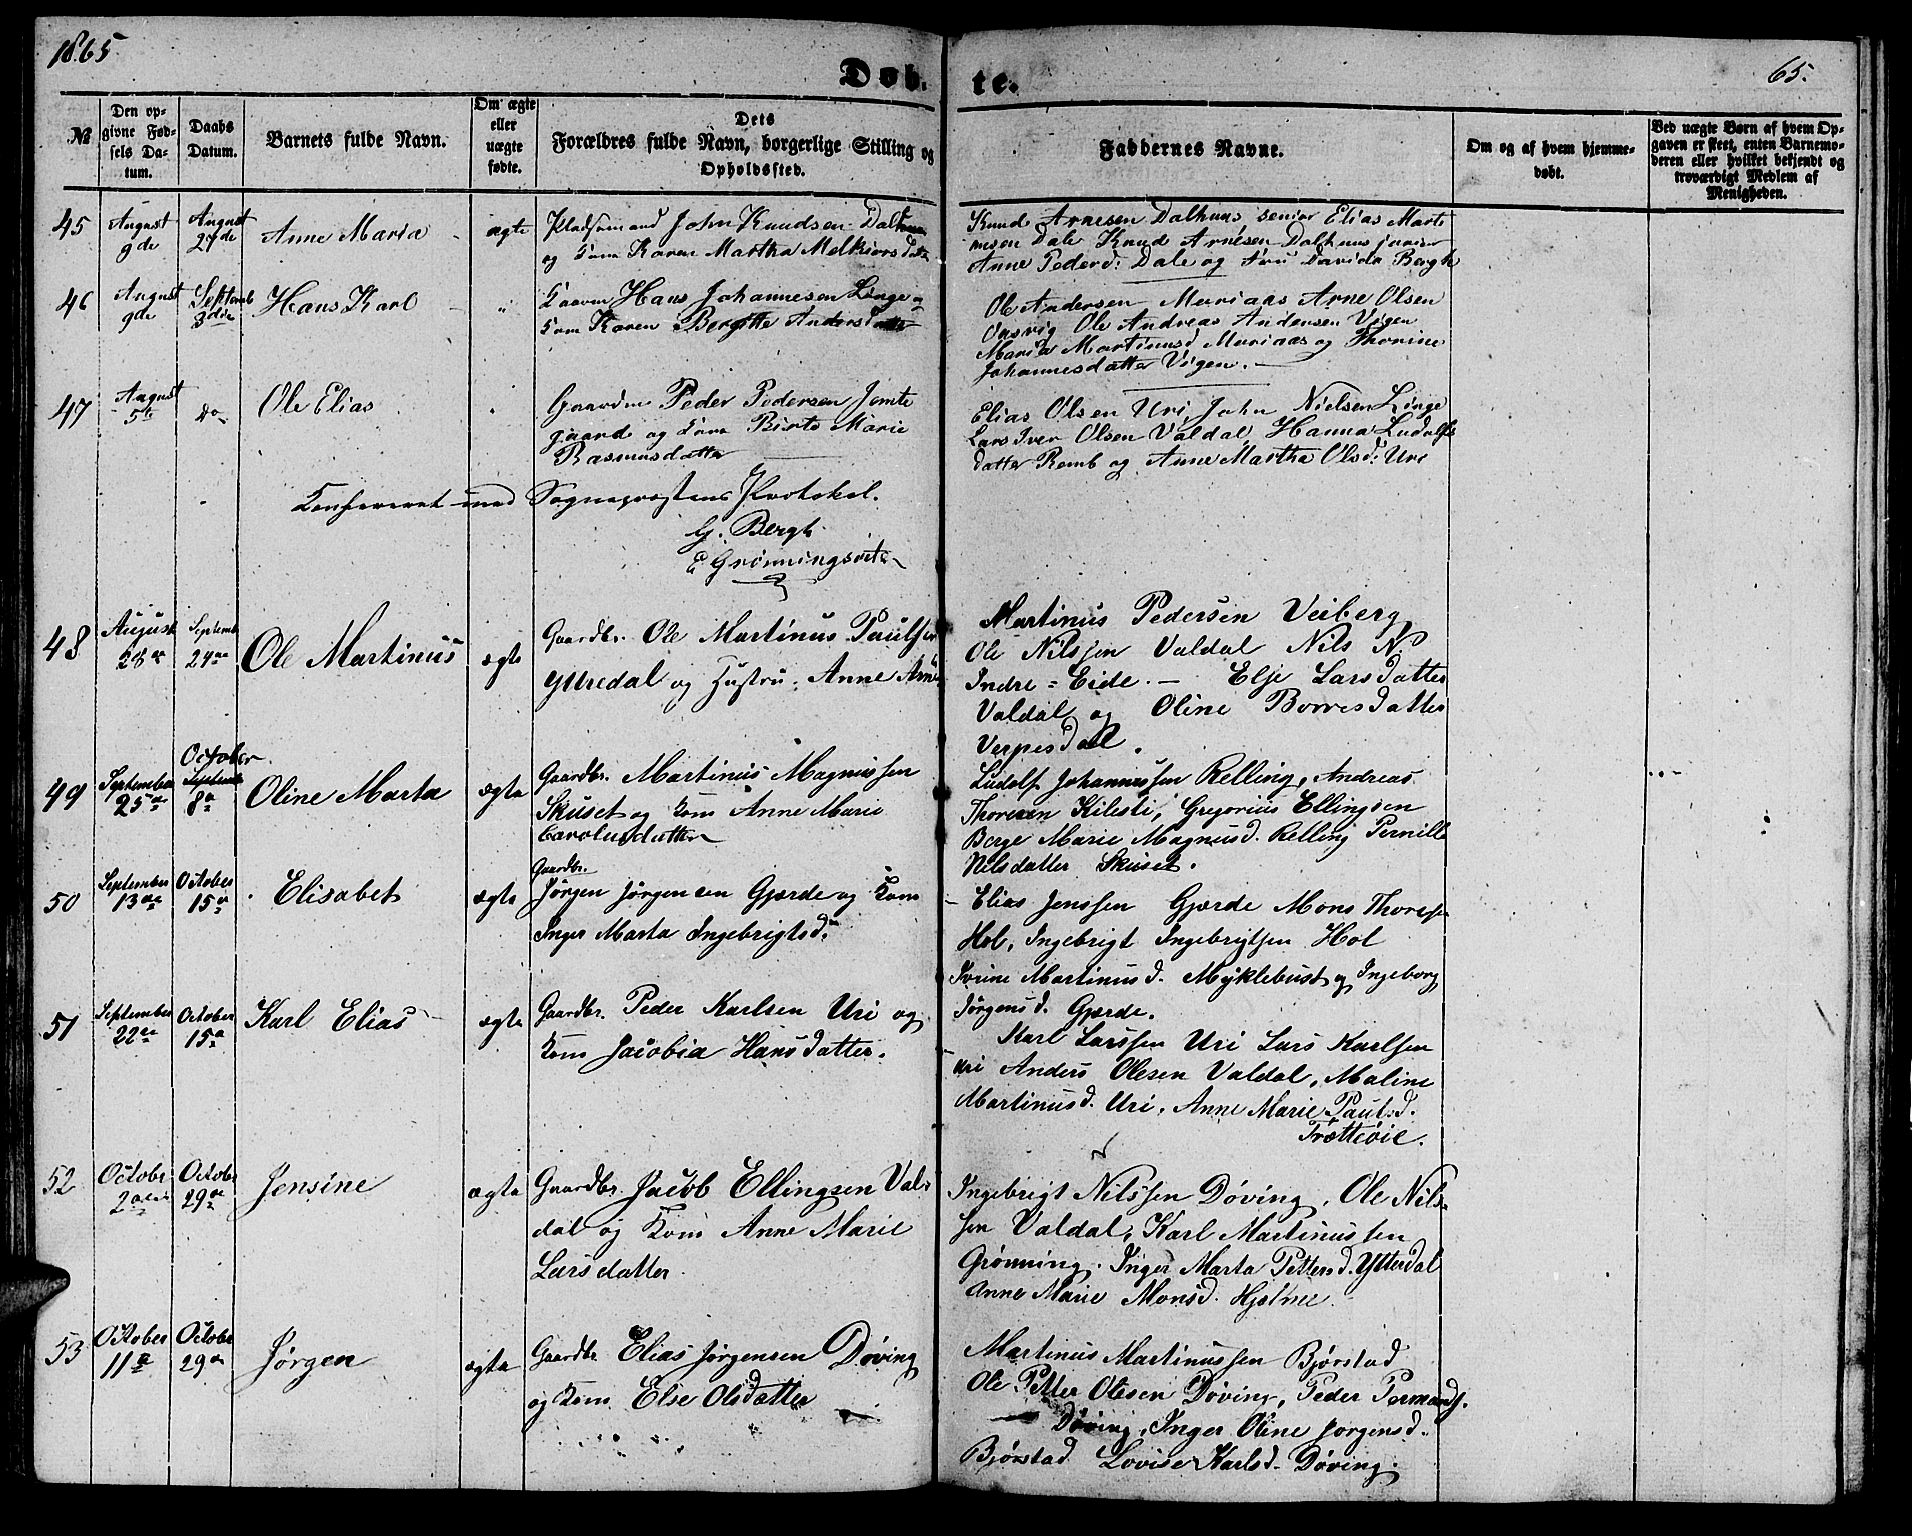 1865
Døb-
te.
65.
№
Den op-
givne Fød-
sels Da-
tum.
Daabs
Datum.
Barnets fulde Navn.
Om ægte
eller
uægte
fødte.
Dets
Forældres fulde Navn, borgerlige Stilling og
Opholdssted.
Faddernes Navne.
Om og af hvem hjemme-
døbt.
Ved uægte Børn af hvem Op-
gaven er skeet, enten Barnemo-
deren eller hvilket bekjendt og
troværdigt Medlem af
Menigheden.
45
August
9de
August
27de
Anne Maria
ægte
Pladsmand John Knudsen
og Kone Karen Martha Melkiorsdatter
Knud Arnesen Dalhuus senior Elias Marti
nusen Dale Knud Arnesen Dalhuus junior
Anne Pederd: Dale og Fru Davida Bergh
46
August
9de
Septemb
3die
Hans Karl
"
Hans Johannesen Linge og
Kone Karen Bergitte Andersdatter
Ole Andersen Muriaas Arne Olsen
Ole Andreas Andersen Vigen
Maria Martinusd Muriaas og Thorine
Johannesdatter Vigen.
47
August
5te
Do
Ole Elias
Gaardm Peder Pedersen Jemte
gaard og Kone Birte Marie
Rasmusdatter
Elias Olsen Uri, John Nielsen Linge
Lars Iver Olsen Valdal, Hanna Ludolfs
datter Remb og Anne Martha Olsd: Uri
Konfereret med Sognepræstens Protokol.
G. Bergh
E Grønningsæter
48
August
28de
Septemb
24de
Ole Martinus
ægte
Gaardbr. Ole Martinus Paulsen
Yttredal og Hustru. Anne Arne
Martinus Pedersen Veiberg
Ole Nilssen Valdal Nils N.
Indre = Eide. — Elje Larsdatter
Valdal og Oline Borresdatter
Verpesdal.
49
September
25de
October
Septemb
8de
Oline Marta
ægte
Gaardbr. Martinus Magnussen
Skuset og Kone Anne Marie
Carolusdatter
Ludolf Johannessen Relling, Andreas
Thoresen Kilesti, Gregorius Ellingsen
Berge Marie Magnusd. Relling Pernille
Nilsdatter Skuset.
50
September
13de
October
15de
Elisabet
ægte
Gaardbr.
Jørgen Jørgensen Gjærde og Kone
Inger Marta Ingebrigtsd.
Elias Jenssen Gjerde Mons Thoressen
Hol, Ingebrigt Ingebrigtsen Hol
Martinusd. Myklebust og Ingeborg
Jørgensd. Gjærde.
51
September
22de
October
15de
Karl Elias
ægte
Gaardbr. Peder Karlsen Uri og
Kone Jacobia Hansdatter.
Karl Larssen Uri Lars Karlsen
Uri Anders Olesen Valdal, Maline
Martinusd. Uri, Anne Marie Paulsd.
Trættøie.
52
October
October
29de
Jensine
ægte
Gaardbr. Jacob Ellingsen Val-
dal og Kone Anne Marie
Larsdatter
Ingebrigt Nilssen Døving, Ole Nils-
sen Valdal, Karl Martinussen
Grønning. Inger Marta Pettersd. Ytterdal
Anne Marie Monsd. Hjelme.
53
October
11de
October
29de
Jørgen
ægte
Gaardbr. Elias Jørgensen Døving
og Kone Else Olsdatter
Martinus Martinussen Bjørstad
Ole Petter Olesen Døving, Peder Permands.
Døving, Inger Oline Jørgensd.
Bjørstad Lovise Karlsd. Døving.